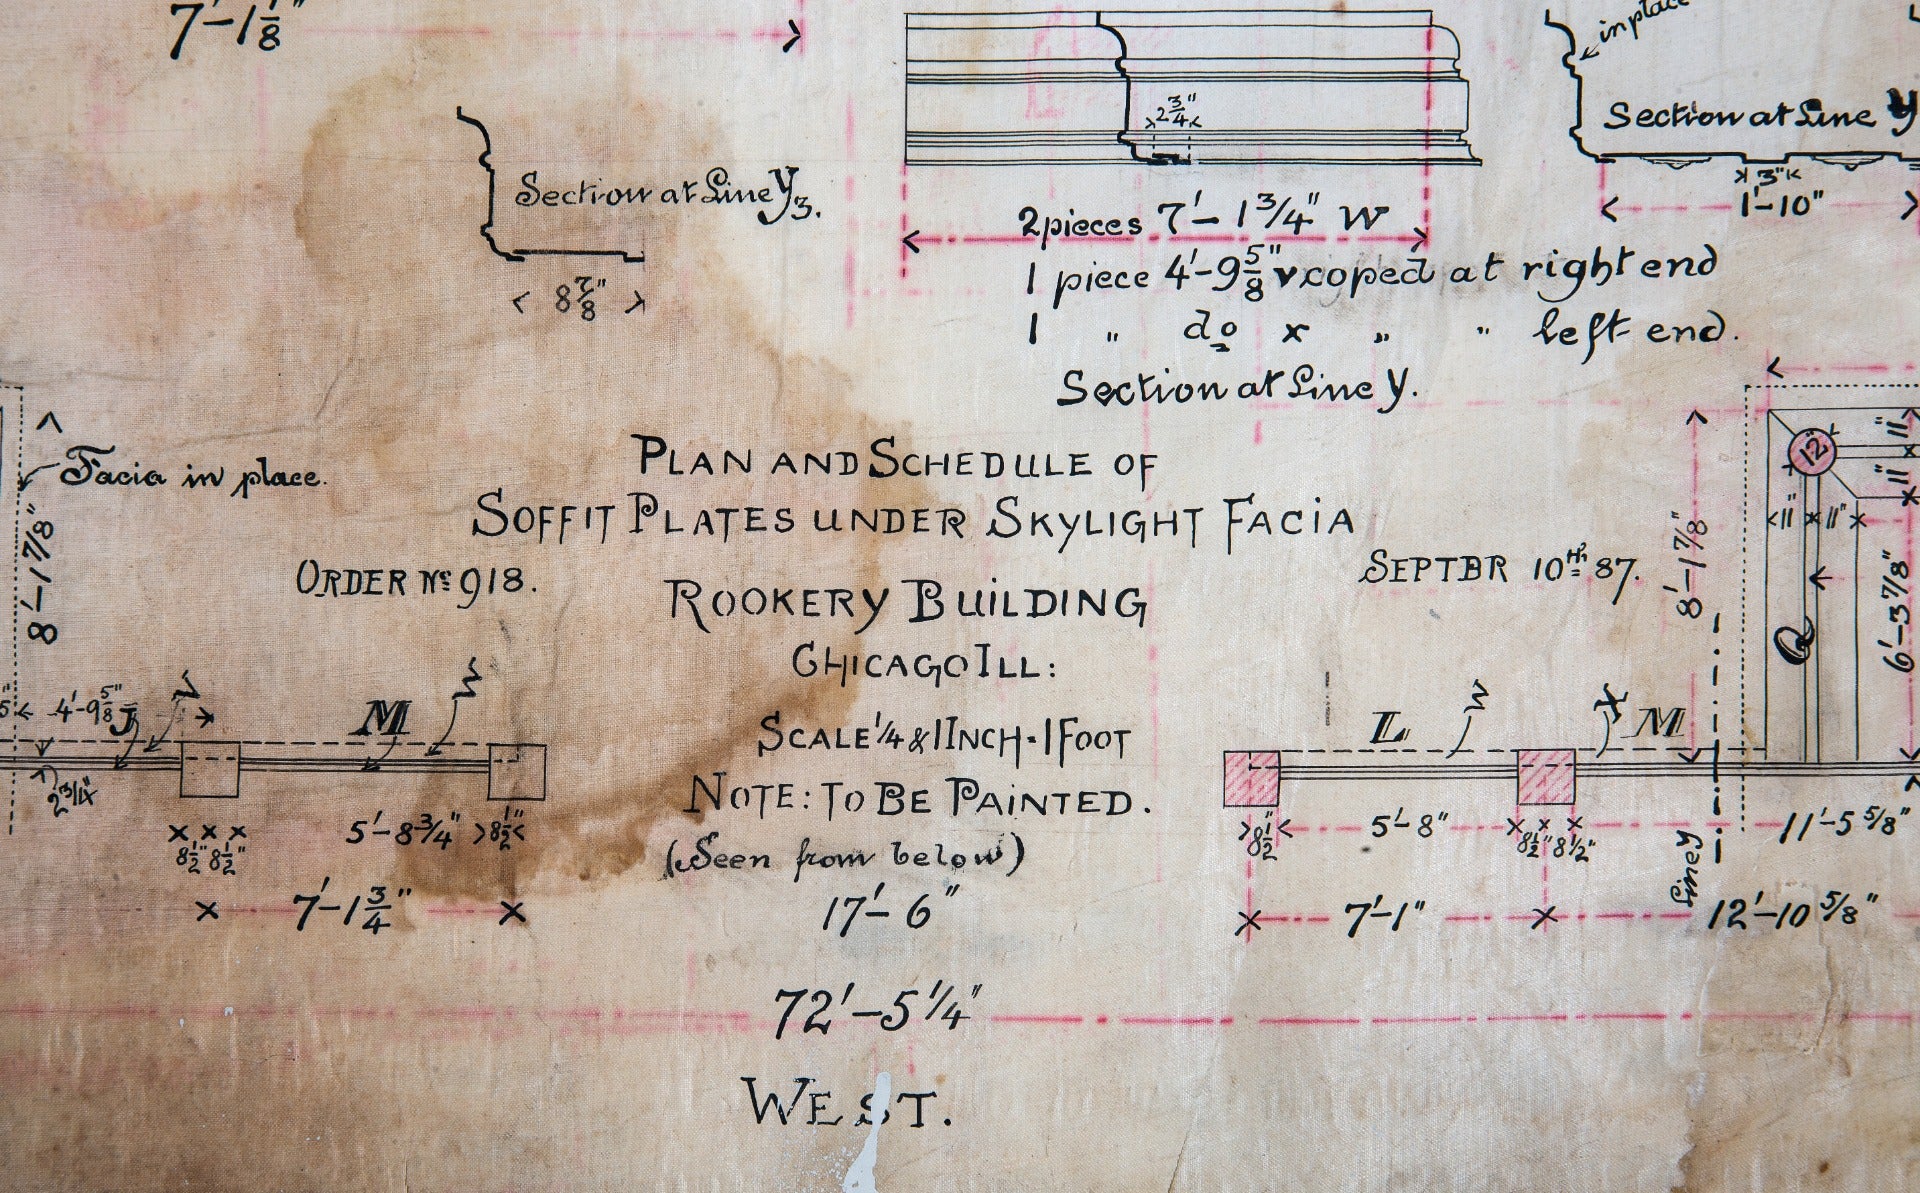 7'-1 1/8"
2 3/4"
in place
Section at Line Y
3"
1'-10"
Section at Line Y3.
8 7/8"
2 pieces 7'-1 3/4" W
1 piece 4'-9 5/8" v coped at right end
1 " do x " " left end.
Section at Line Y.
Facia in place.
8'-1 7/8"
PLAN AND SCHEDULE OF
SOFFIT PLATES UNDER SKYLIGHT FACIA
ORDER No 918.
SEPTBR 10TH 87.
ROOKERY BUILDING
CHICAGO ILL:
SCALE 1/4 & 1 INCH = 1 FOOT
NOTE: TO BE PAINTED.
(Seen from below)
17'-6"
72'-5 1/4"
WEST.
5"
4'-9 5/8"
J
V
M
W
8 1/2" 8 1/2"
5'-8 3/4"
8 1/2"
7'-1 3/4"
12"
11"
11"
11" 11"
8'-1 7/8"
6'-3 7/8"
Q
L
W
X
M
8 1/2"
5'-8"
8 1/2" 8 1/2"
11'-5 5/8"
Line Y
7'-1"
12'-10 5/8"